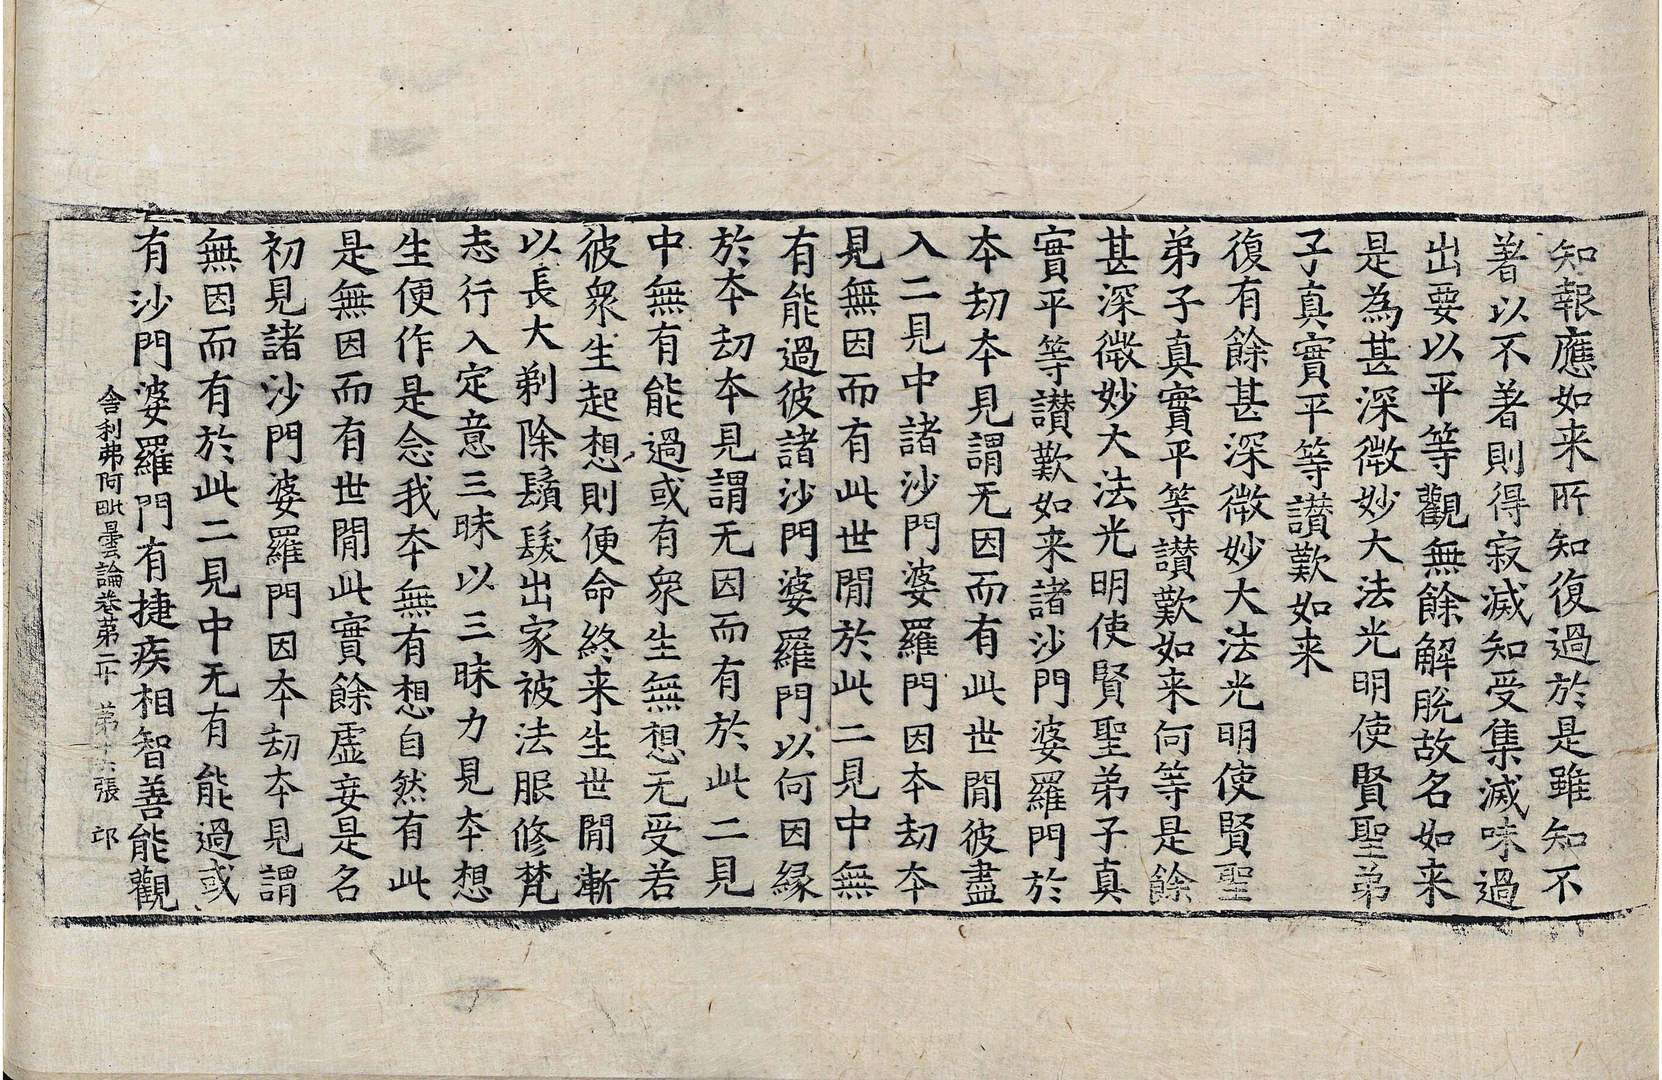 知報應如来所知復過於是雖知不
著以不著則得寂滅知受集滅味過
出要以平等觀無餘解脫故名如来
是為甚深微妙大法光明使賢聖弟
子真實平等讃歎如来
復有餘甚深微妙大法光明使賢聖
弟子真實平等讃歎如来何等是餘
甚深微妙大法光明使賢聖弟子真
實平等讃歎如来諸沙門婆羅門於
本劫本見謂无因而有此世閒彼盡
入二見中諸沙門婆羅門因本劫本
見無因而有此世閒於此二見中無
有能過彼諸沙門婆羅門以何因緣
於本劫本見謂无因而有於此二見
中無有能過或有衆生無想无受若
彼衆生起想則便命終来生世閒漸
以長大剃除鬚髮出家被法服修梵
志行入定意三昧以三昧力見本想
生便作是念我本無有想自然有此
是無因而有世閒此實餘虛妄是名
初見諸沙門婆羅門因本劫本見謂
無因而有於此二見中无有能過或
有沙門婆羅門有捷疾相智善能觀
舎利弗阿毗曇論卷第二十 第十六張 邙